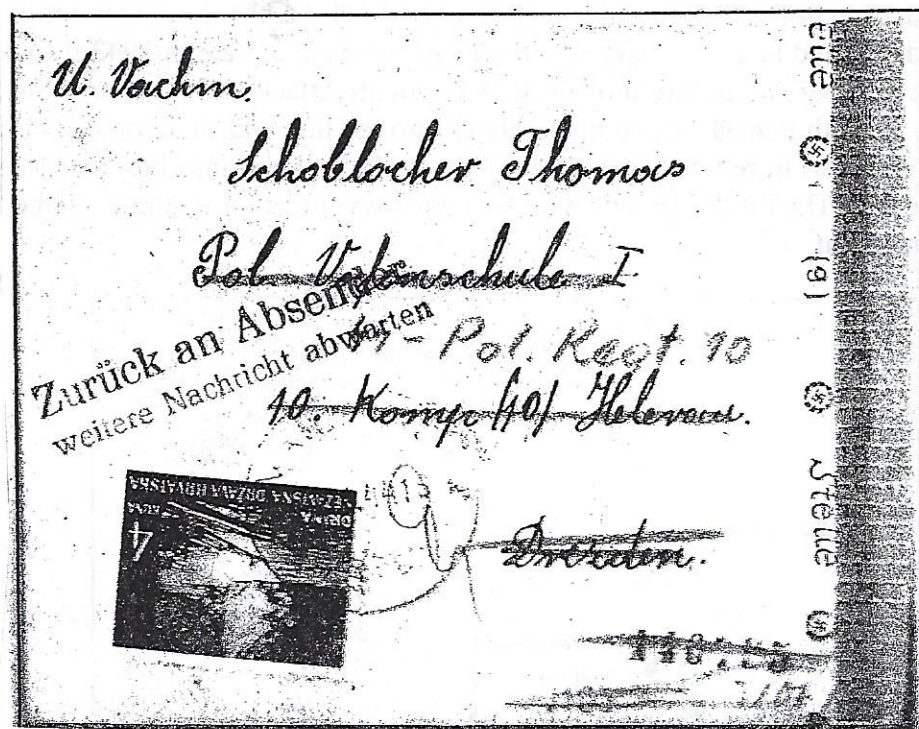 U. Vachm.
Schoblocher Thomas
Pol Vafenschule I
Zurück an Absender
weitere Nachricht abwarten
Pol. Regt. 10
10. Komp (10) Helerau.
Dresden.
NEZAVISNA DRŽAVA HRVATSKA
DRINA
4 KUNA
(9)
Stelle